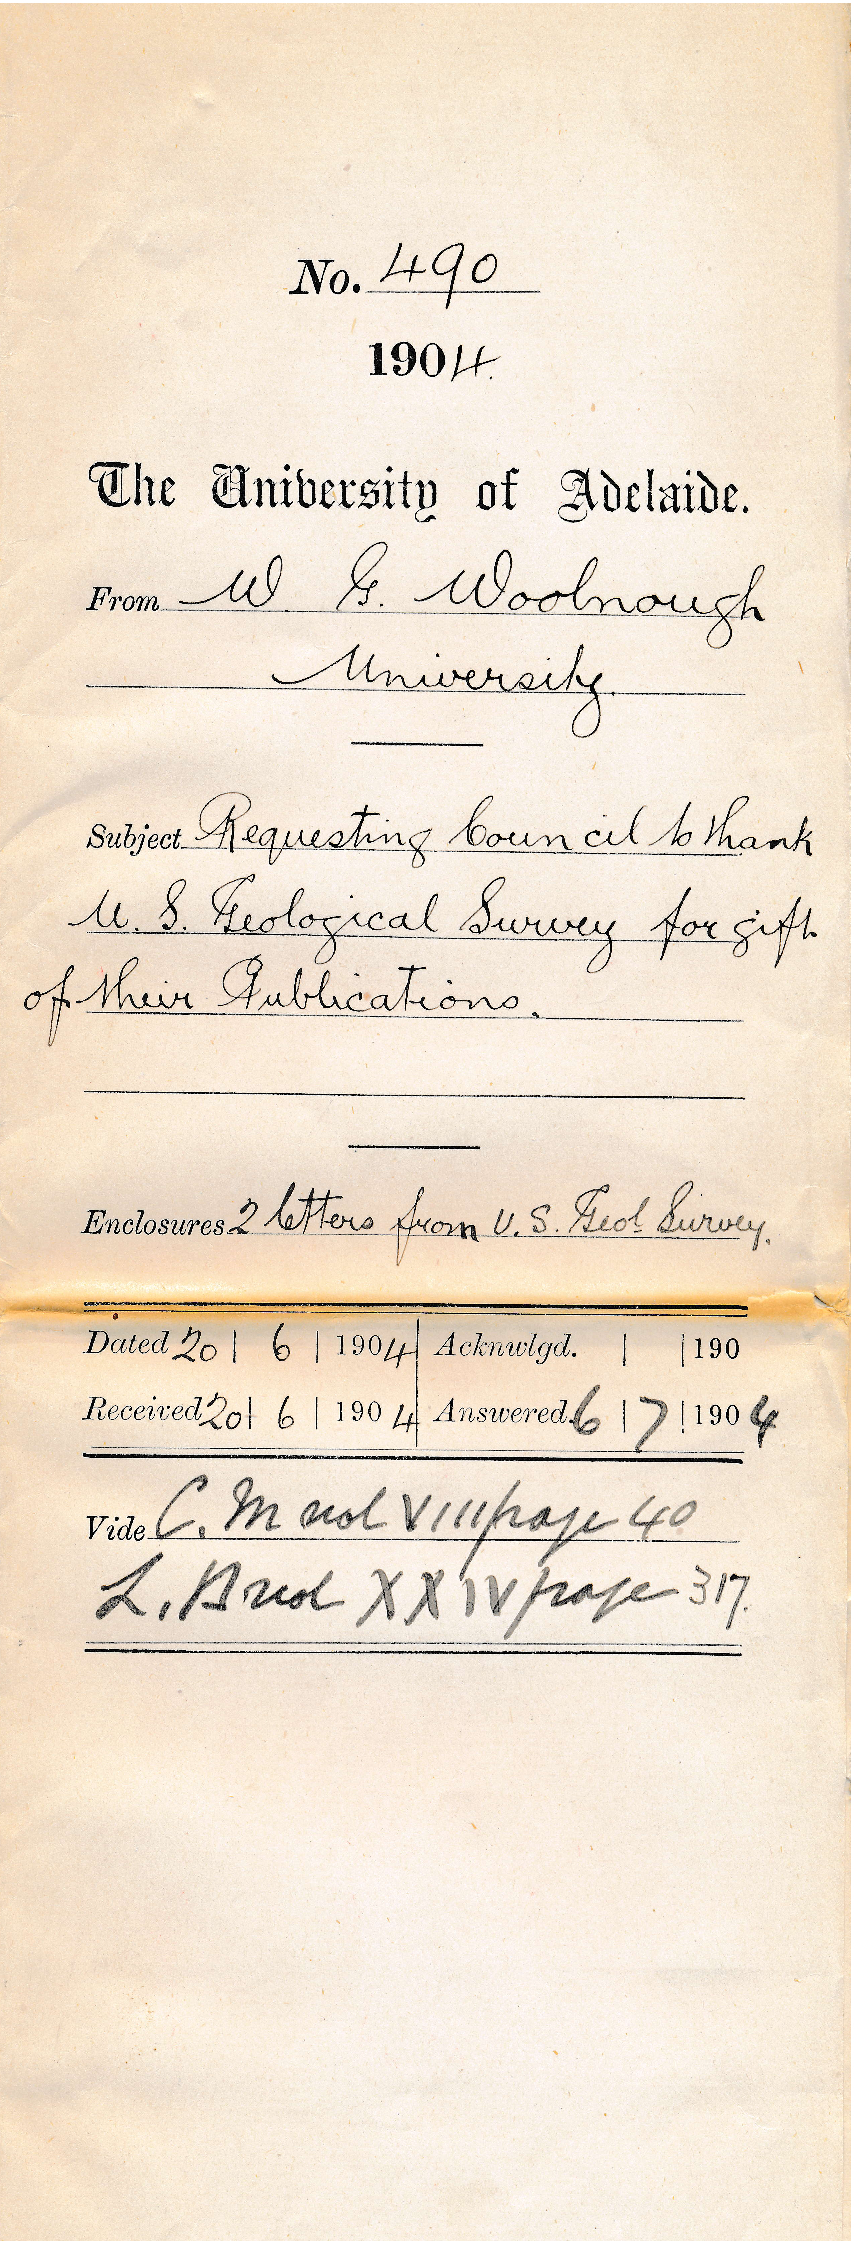 No. 490
1904.
The University of Adelaide.
From W. G. Woolnough
University.
Subject Requesting Council to thank
U. S. Geological Survey for gift
of their Publications.
Enclosures 2 letters from U. S. Geol. Survey.
Dated 20 | 6 | 1904 Acknwlgd. | | 190
Received 20 | 6 | 1904 Answered 6 | 7 | 1904
Vide C. M vol VIII page 40
L. B vol XXIV page 317.